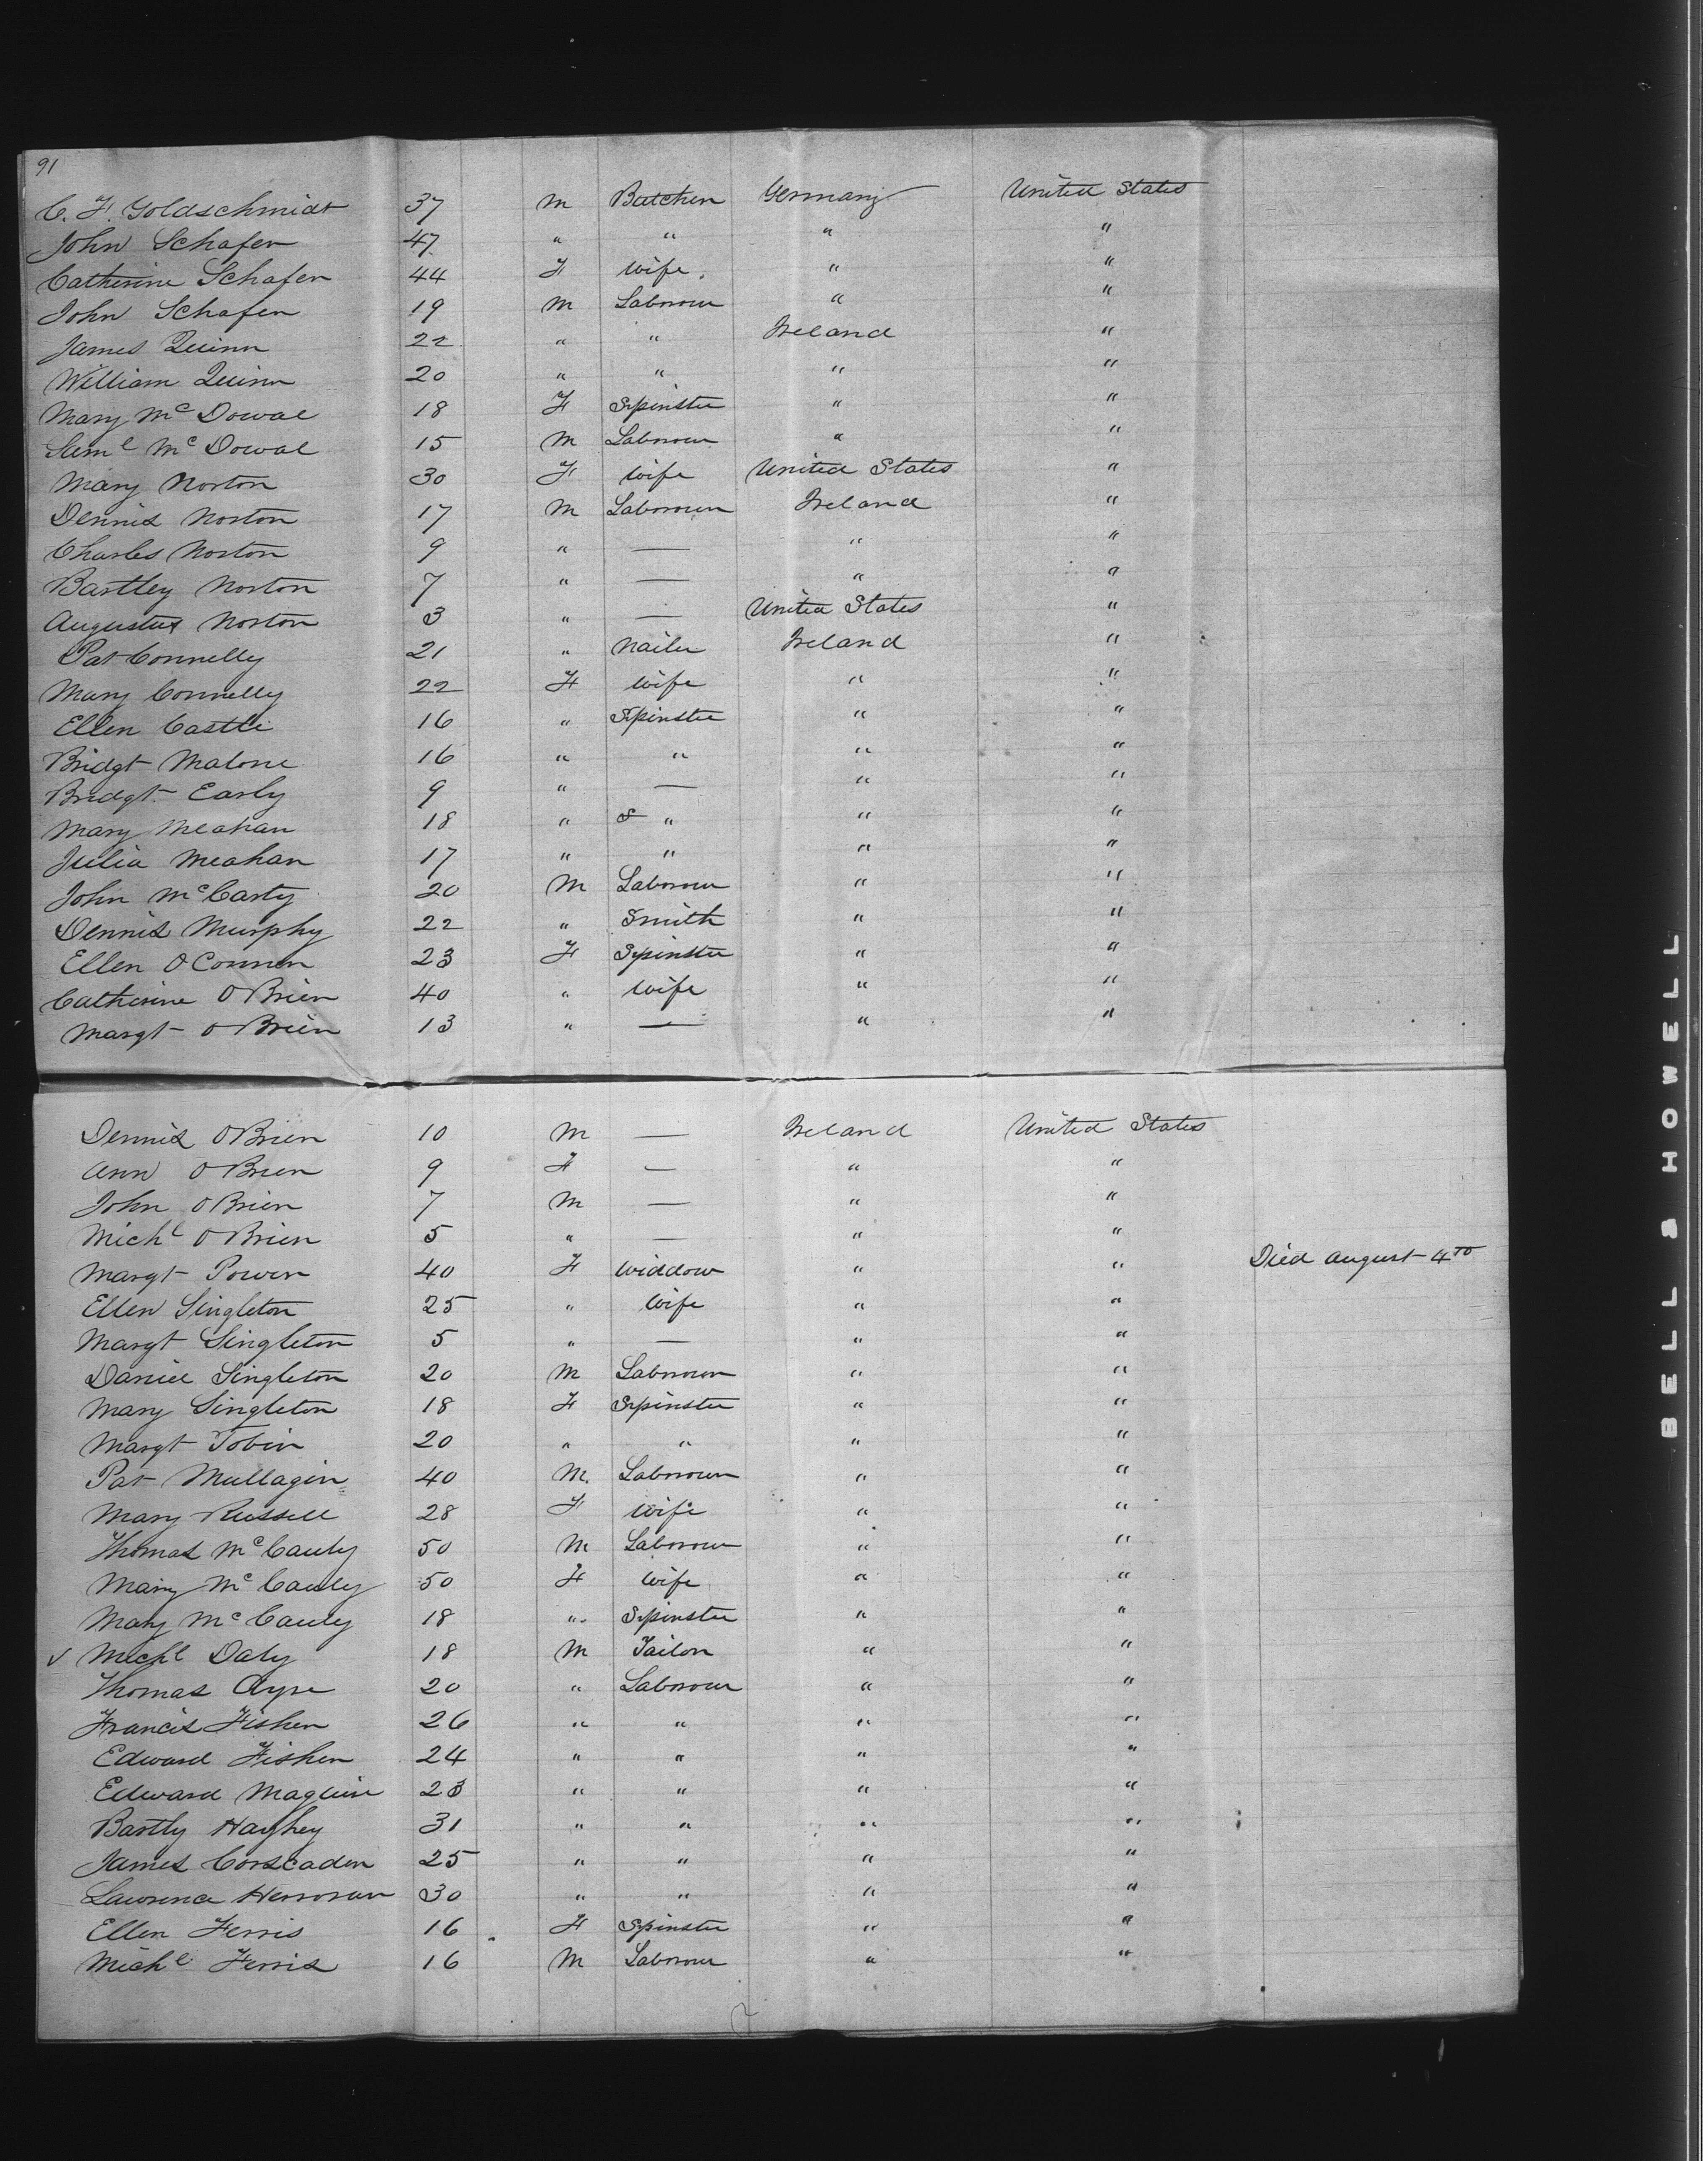 91
C. F. Goldschmidt 37 m Butcher Germany United States
John Schafer 47 " " " "
Catherine Schafer 44 F Wife. " "
John Schafer 19 m Labrour " "
James Quinn 22 " " Ireland "
William Quinn 20 " " " "
Mary McDowal 18 F Spinster " "
Saml McDowal 15 m Labrour " "
Mary Norton 30 F Wife United States "
Dennis Norton 17 m Labrour Ireland "
Charles Norton 9 " — " "
Bartley Norton 7 " — " "
Augustus Norton 3 " — United States "
Pat Connelly 21 " Nailer Ireland "
Mary Connelly 22 F Wife " "
Ellen Castle 16 " Spinster " "
Bridgt Malone 16 " " " "
Bridgt Early 9 " — " "
Mary Meahan 18 " S " " "
Julia Meahan 17 " " " "
John McCarty 20 m Labrour " "
Dennis Murphy 22 " Smith " "
Ellen OConnor 23 F Spinster " "
Catherine OBrien 40 " Wife " "
Margt OBrien 13 " — " "
Dennis OBrien 10 m — Ireland United States
Ann OBrien 9 F — " "
John OBrien 7 m — " "
Michl OBrien 5 " — " "
Margt Power 40 F Widdow " " Died August 4TH
Ellen Singleton 25 " Wife " "
Margt Singleton 5 " — " "
Daniel Singleton 20 m Labrour " "
Mary Singleton 18 F Spinster " "
Margt Tobin 20 " " " "
Pat Mullagin 40 m. Labrour " "
Mary Russell 28 F Wife " "
Thomas McCauly 50 m Labrour " "
Mary McCauly 50 F Wife " "
Mary McCauly 18 " Spinster " "
✓ Michl Daly 18 m Tailor " "
Thomas Ayre 20 " Labrour " "
Francis Fisher 26 " " " "
Edward Fisher 24 " " " "
Edward Maguire 23 " " " "
Bartly Haughey 31 " " " "
James Corscaden 25 " " " "
Lawrence 30 " " " "
Ellen Ferris 16 F Spinster " "
Michl Ferris 16 m Labrour " "
BELL & HOWELL